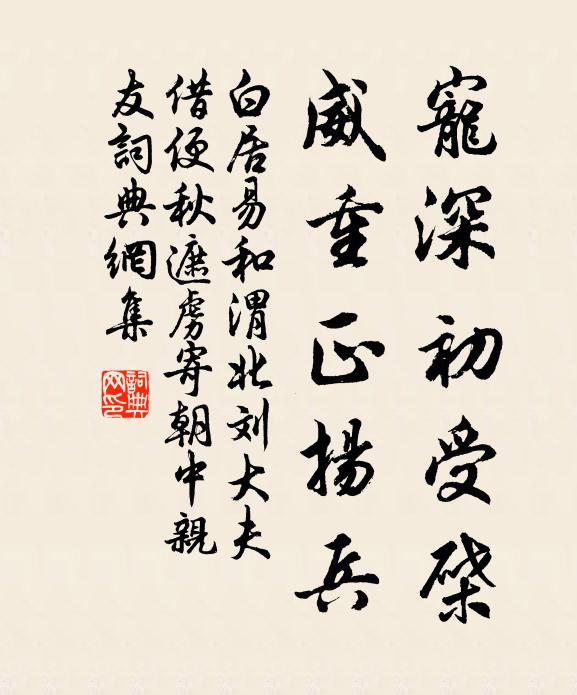 寵深初受棨
威重正揚兵
白居易和渭北刘大夫
借便秋遮虏寄朝中親
友詞典網集
詞典
网印